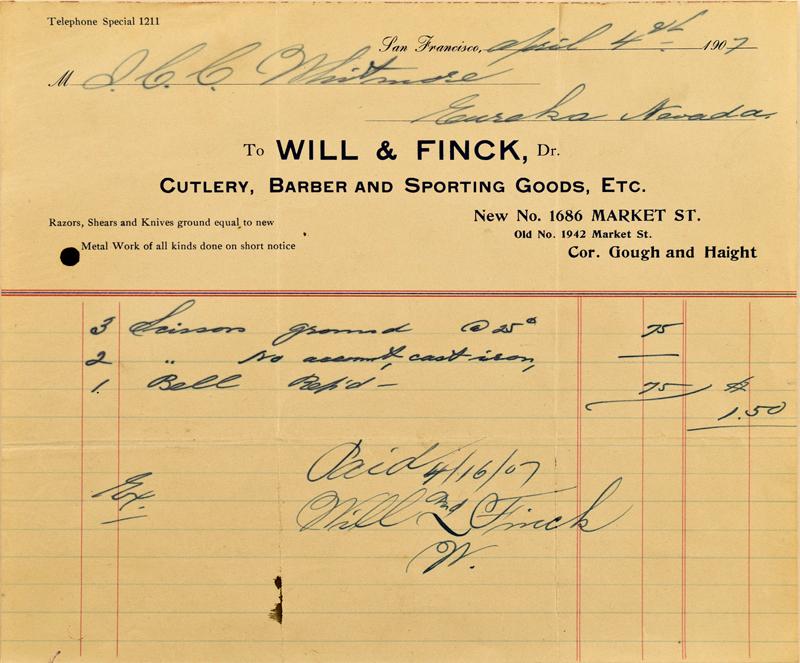 Telephone Special 1211
San Francisco, April 4th 1907
M J. C. C. Whitmore
Eureka Nevada.
To WILL & FINCK, Dr.
CUTLERY, BARBER AND SPORTING GOODS, ETC.
Razors, Shears and Knives ground equal to new
New No. 1686 MARKET ST.
Old No. 1942 Market St.
Metal Work of all kinds done on short notice
Cor. Gough and Haight
3 Scissors ground @ 25¢ 75
2 " No account, cast iron, —
1. Bell Rep'd — 75 $
1.50
Paid 4/16/07
Ex.
Will & Finck
W.